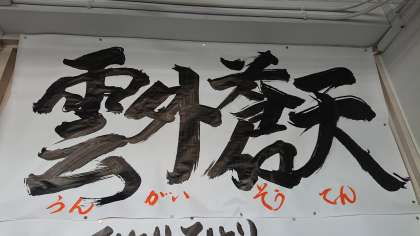 雲外蒼天
うん がい そう てん